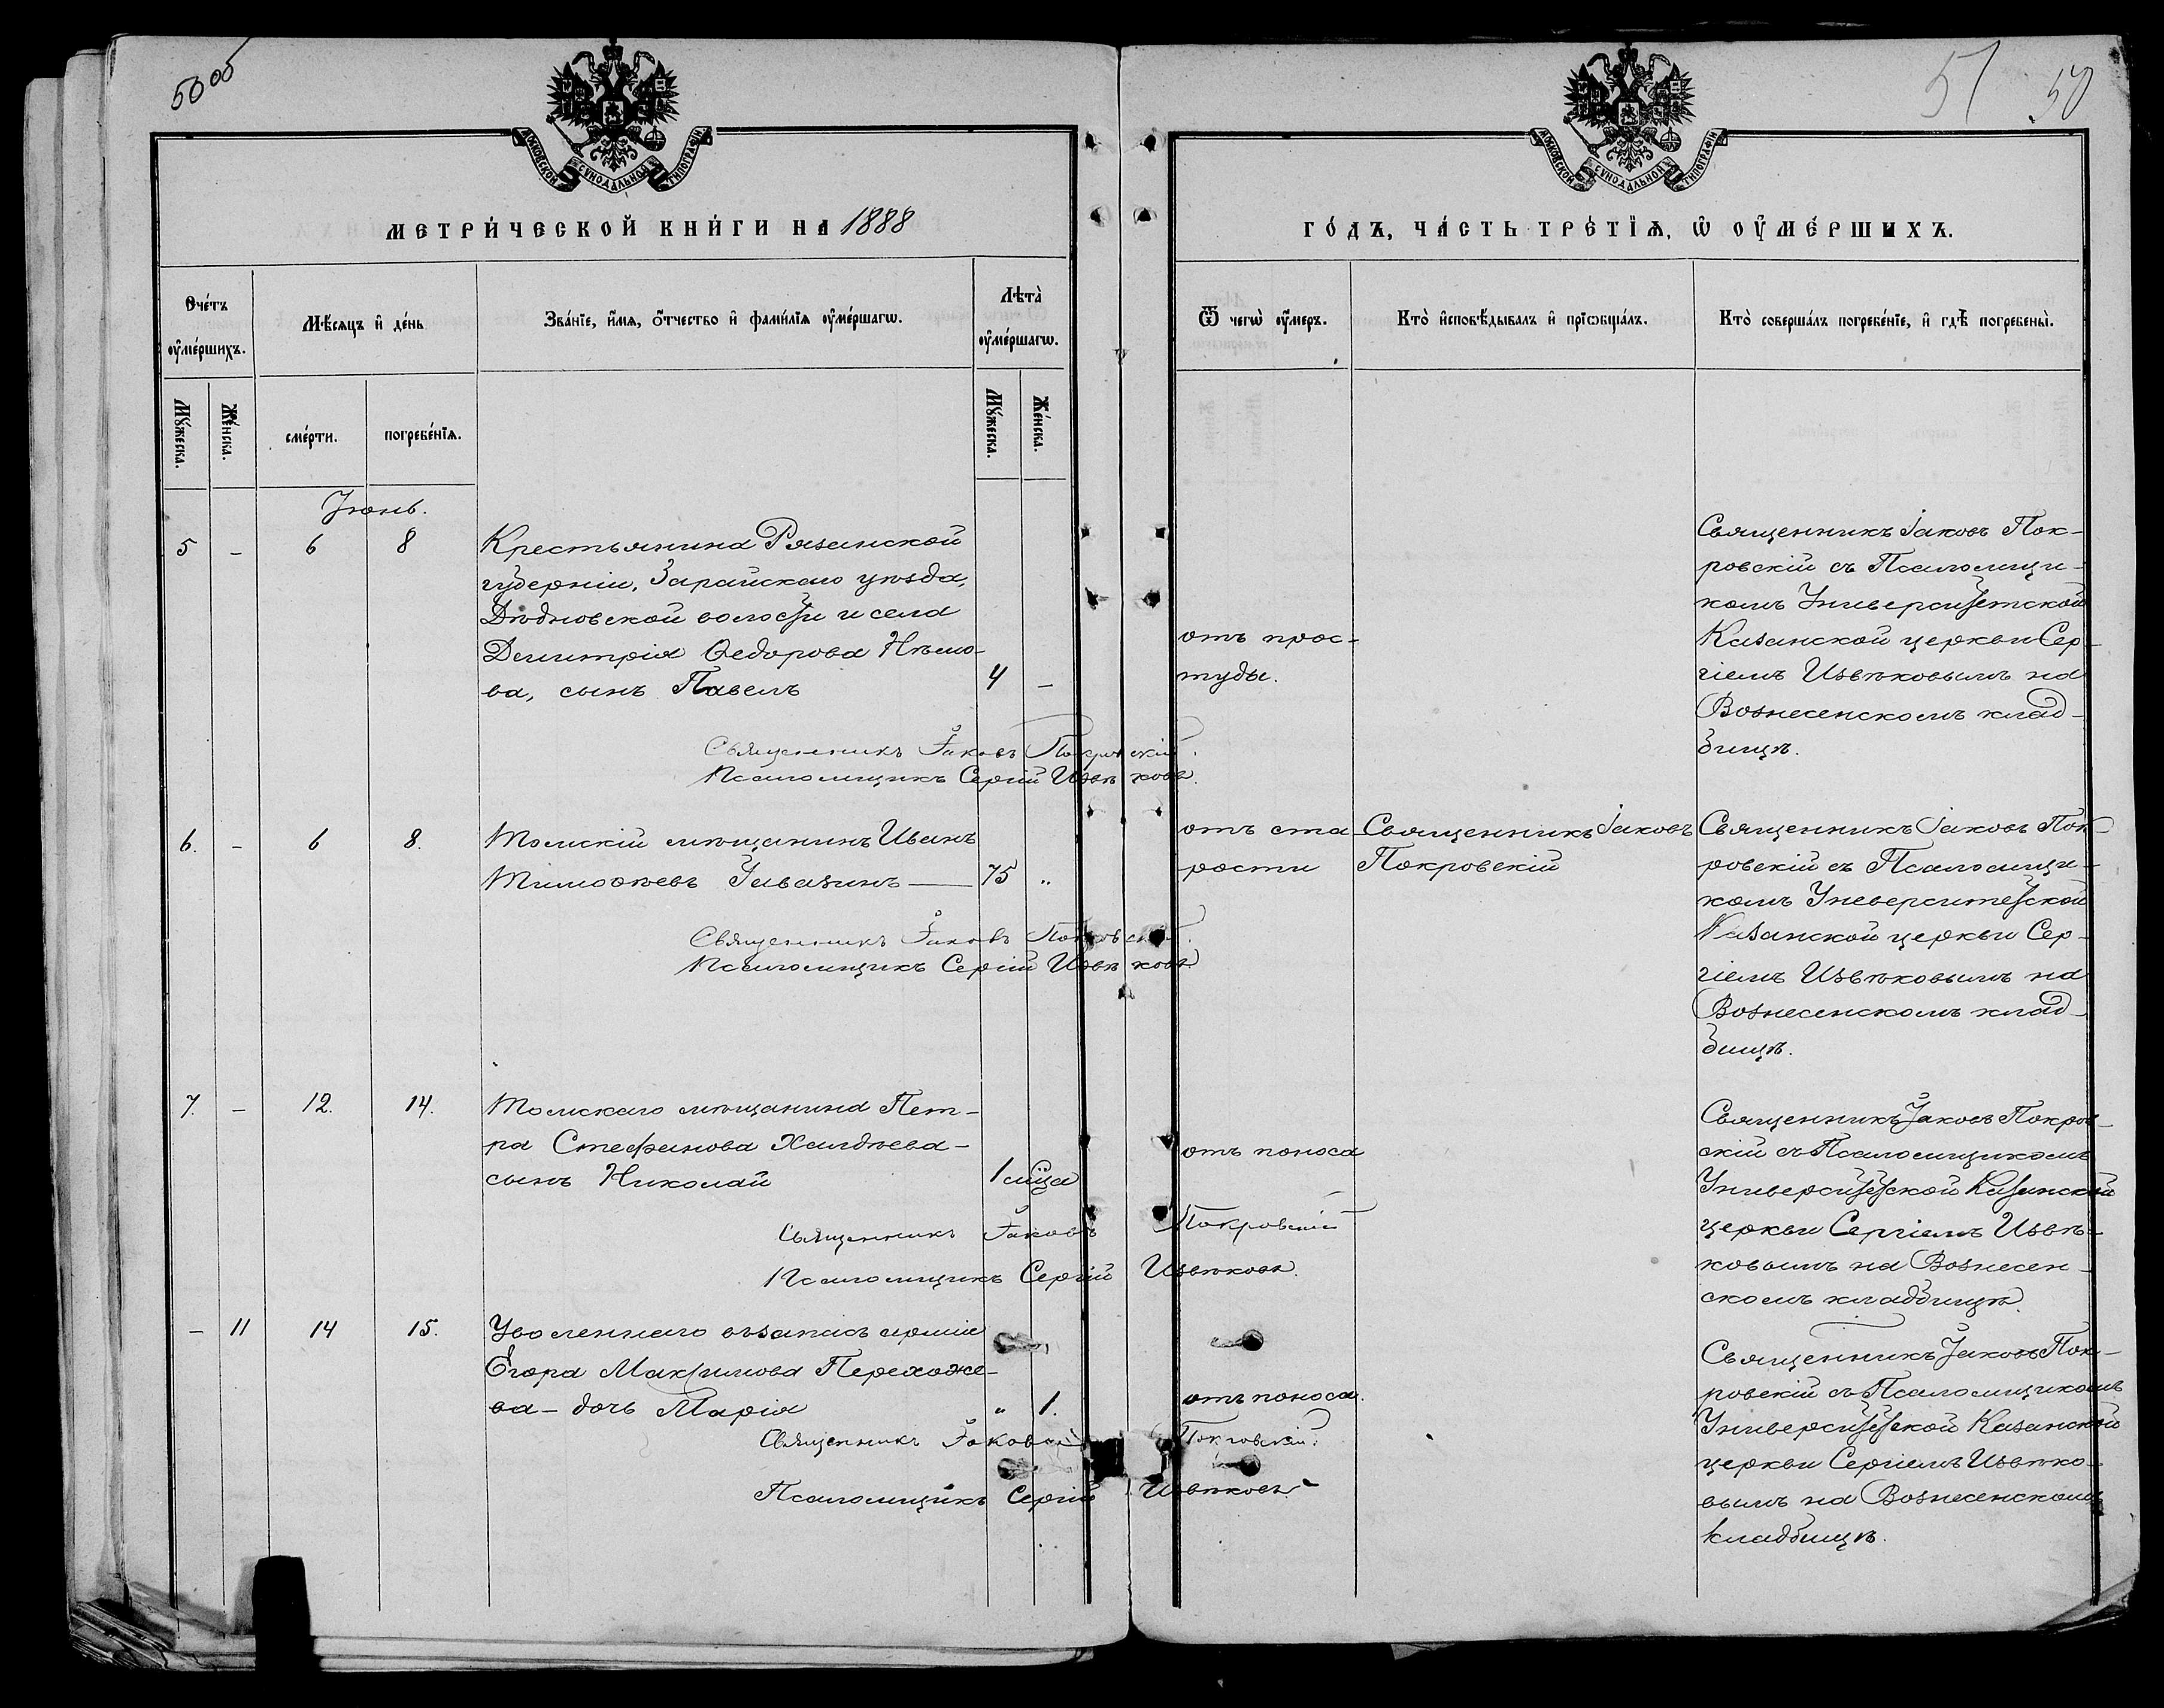 50 об
МОСКОВСКОЙ СУНОДАЛЬНОЙ ТИПОГРАФІИ
МЕТРИ́ЧЕСКОЙ КНИ́ГИ НА 1888
Счéтъ ᲂу҆мéршихъ.
Мѣ́сяцъ и҆ дéнь
Звáнїе, и҆́мя, ѻ҆́тчество и҆ фами́лїя ᲂу҆мéршагѡ.
Лѣ́та ᲂу҆мéршагѡ.
Мꙋ́жеска.
Жéнска.
смéрти.
погребéнїѧ.
Мꙋ́жеска.
Жéнска.
Іюнь.
5 – 6 8 Крестьянина Рязанской
губерніи, Зарайскаго уѣзда,
Дѣдновской волости и села
Димитрія Ѳедорова Нѣмо-
ва, сынъ Павелъ 4 –
Священникъ Іаковъ Покровскій.
Псаломщикъ Сергій Цвѣтковъ.
6. – 6 8. Томскій мѣщанинъ Иванъ
Тимоѳеевъ 75 "
Священникъ Іаковъ Покровскій.
Псаломщикъ Сергій Цвѣтковъ.
7. – 12. 14. Томскаго мѣщанина Пет-
ра Стефанова Халдѣева –
сынъ Николай 1 м҃ца
Священникъ Іаковъ Покровскій
Псаломщикъ Сергій Цвѣтковъ.
– 11 14 15. Уволеннаго въ запасъ арміи
Егора Максимова Перехоже-
ва – дочь Марія " 1.
Священникъ Іаковъ Покровскій.
Псаломщикъ Сергій Цвѣтковъ
51 50
МОСКОВСКОЙ СУНОДАЛЬНОЙ ТИПОГРАФІИ
ГÓДЪ, ЧА́СТЬ ТРЕ́ТЇѦ, Ѡ҆ ОУ҆МЕ́РШИХЪ.
Ѿ чегѡ̀ ᲂу҆́меръ.
Ктò и҆сповѣ́дывалъ и҆ прїѻбщáлъ.
Ктò совершáлъ погребéнїе, и҆ гдѣ̀ погребены̀.
отъ прос-
туды.
Священникъ Іаковъ Пок-
ровскій съ Псаломщи-
комъ Университетской
Казанской церкви Сер-
гіемъ Цвѣтковымъ на
Вознесенскомъ клад-
бищѣ.
отъ ста-
рости
Священникъ Іаковъ
Покровскій
Священникъ Іаковъ Пок-
ровскій съ Псаломщи-
комъ Университетской
Казанской церкви Сер-
гіемъ Цвѣтковымъ на
Вознесенскомъ клад-
бищѣ.
отъ поноса
Священникъ Іаковъ Покров-
скій съ Псаломщикомъ
Университетской Казанской
церкви Сергіемъ Цвѣт-
ковымъ на Вознесен-
скомъ кладбищѣ.
отъ поноса.
Священникъ Іаковъ Пок-
ровскій съ Псаломщикомъ
Университетской Казанской
церкви Сергіемъ Цвѣтко-
вымъ на Вознесенскомъ
кладбищѣ.